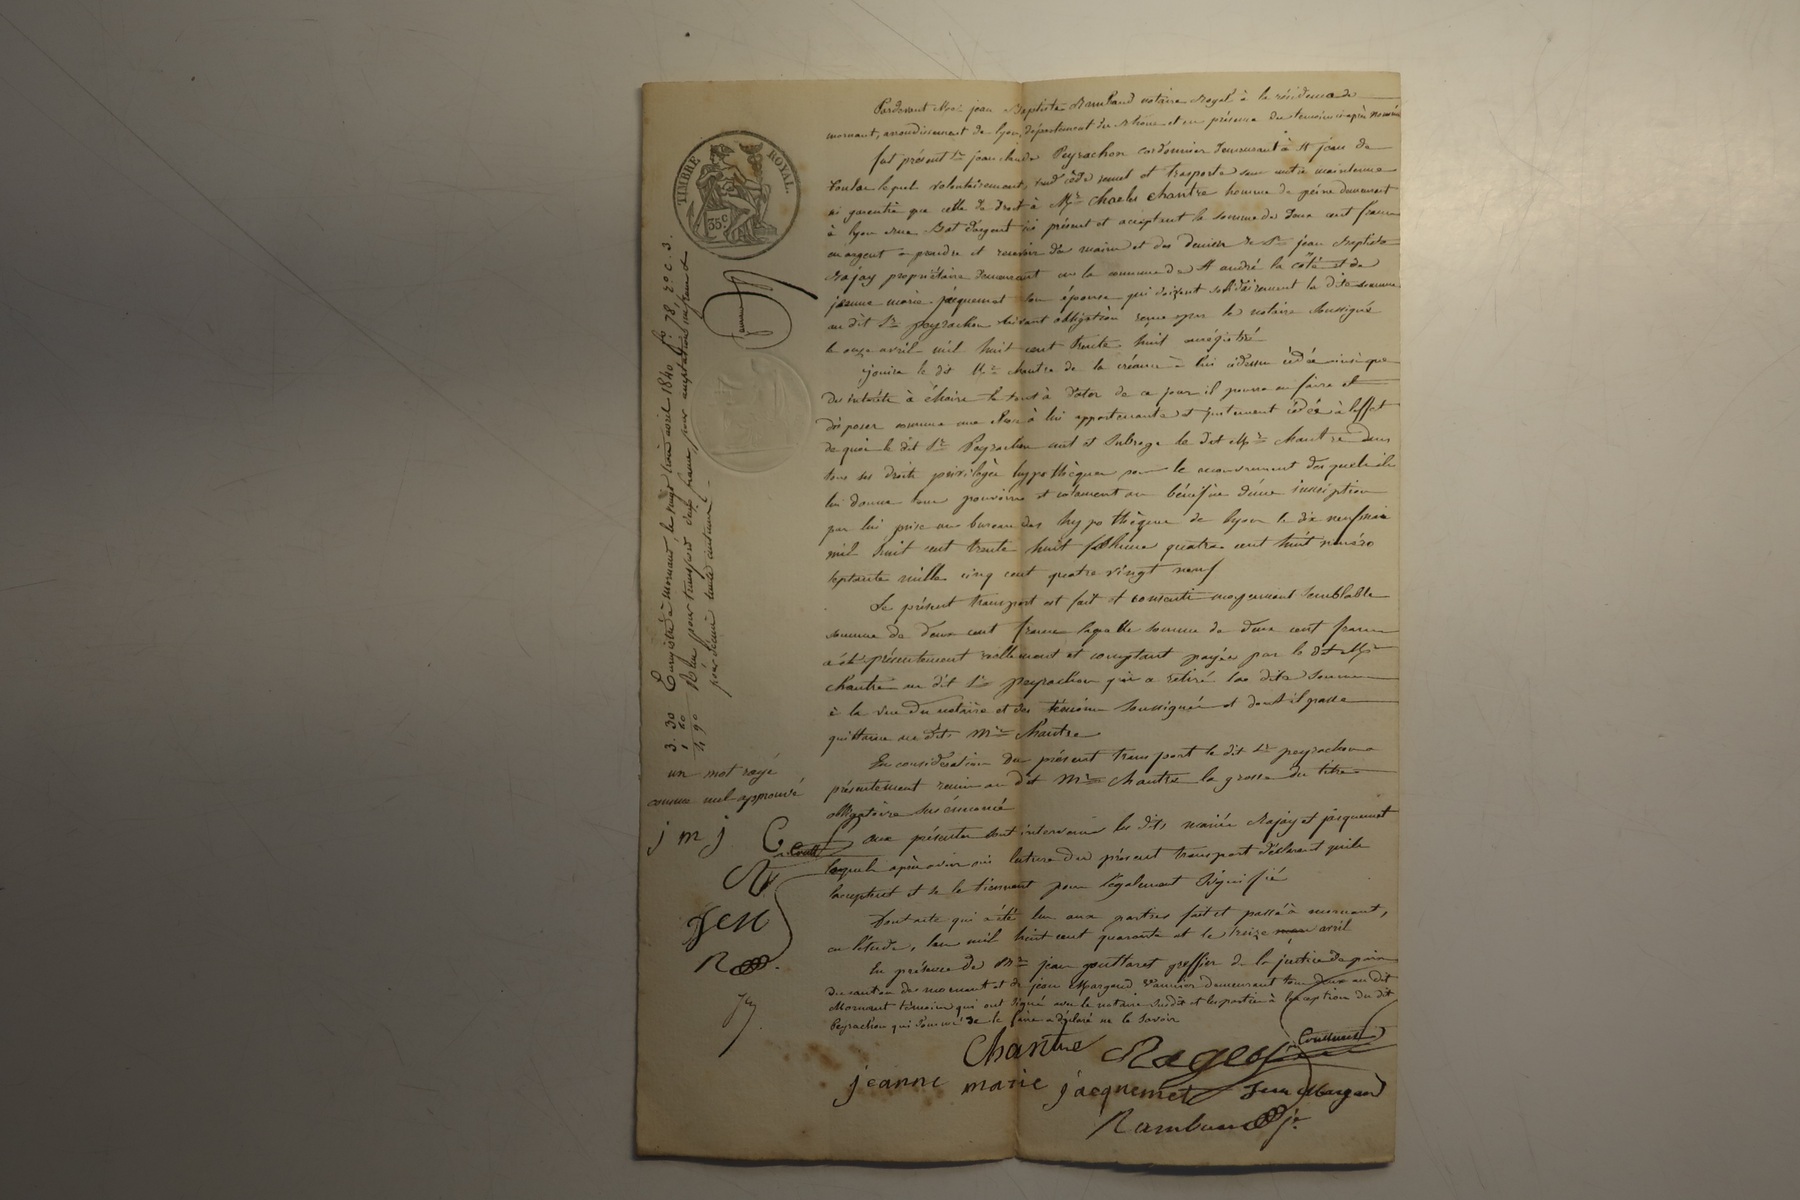 Pardevant Me jean Baptiste Rambaud notaire Royal à la résidence de
mornant, arrondissement de lyon, département du Rhône et en présence des témoins ci après nommés
fut présent Sr jean claude Peyrachon cordonnier demeurant à St jean de
toulas lequel volontairement, cède remet et trasporte sans autre maintenue
ni garentie que celle de droit à Mr Charles Chantre homme de peine demeurant
à lyon rue Bât d'argent ici présent et acceptant la somme de deux cent francs
en argent a prendre et recevoir des mains et des deniers de Sr jean Baptiste
Rajay propriétaire demeurant en la commune de St andré la côte et de
jeanne marie jacquemet son épouse qui doivent solidairement la dite somme
au dit Sr peyrachon suivant obligation reçue par le notaire soussigné
le onze avril mil huit cent trente huit enrégistré
jouira le dit Mr Chantre de la créance à lui cidessus cédée ainsi que
des intérêts à échoire le tout à dater de ce jour il pourra en faire et
disposer comme une chose à lui appartenante et justement cédée à l'effet
de quoi le dit Sr Peyrachon met et subroge le dit Mr Chantre dans
tous ses droits privilèges hypothèques pour le recouvrement desquels il
lui donne tous pouvoirs et notament au bénéfice d'une inscription
par lui prise au bureau des hypothèques de lyon le dix neuf mai
mil huit cent trente huit volume quatre cent huit numéro
septante mille cinq cent quatre vingt neuf
Le présent transport est fait et consenti moyennant semblable
somme de deux cent francs laquelle somme de deux cent francs
a été présentement réellement et comptant payée par le dit Mr
Chantre au dit Sr peyrachon qui a retiré la dite somme
à la vue du notaire et des témoins soussignés et dont il passe
quittance au dit Mr Chantre
En considération du présent transport le dit Sr peyrachon a
présentement remis au dit Mr Chantre la grosse du titre
obligatoire sus énoncé
aux présentes sont intervenus les dits mariés Rajay et jacquemet
lesquels après avoir ouï lecture du présent transport déclarent qu'ils
l'acceptent et se le tiennent pour légalement signifié
Dont acte qui a été lu aux parties fait et passé à mornant,
en l'étude, l'an mil huit cent quarante et le treize avril
En présence de Mr jean gouttaret greffier de la justice de paix
du canton de mornant et de jean Margaud vannier demeurant tous deux au dit
Mornant témoins qui ont signé avec le notaire susdit et les parties à l'exception du dit
Peyrachon qui sommé de le faire a déclaré ne le savoir
Chantre
jeanne marie jacquemet
jean Margaud
Rambaud
TIMBRE ROYAL.
35c
Enregistré à mornant, le vingt trois avril 1840 fo 78, ro c. 3.
Reçu pour transport deux francs, pour acceptation un franc
3. 30
un mot rayé
comme nul approuvé
j m j
JCM
R